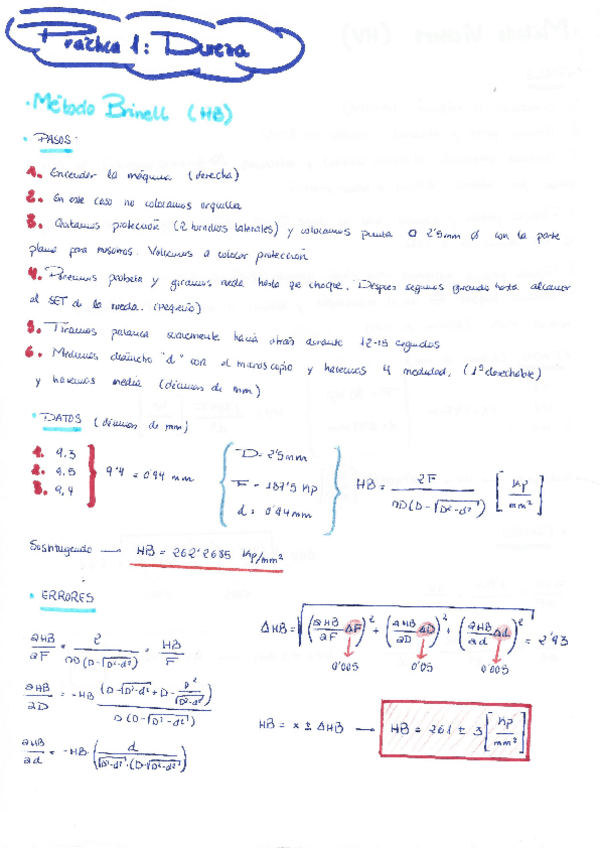 Práctica 1: Dureza
· Método Brinell (HB)
· PASOS:
1. Encender la máquina (derecha)
2. En este caso no colocamos arquilla
3. Quitamos protección (2 tornillos laterales) y colocamos punta O 2'5mm ϕ con la parte
plana para nosotros. Volvemos a colocar protección
4. Ponemos probeta y giramos rueda hasta que choque. Despues seguimos girando hasta alcanzar
el SET de la rueda. (pequeño)
5. Tiramos palanca suavemente hacia atrás durante 12-15 segundos
6. Medimos diámetro "d" con el microscopio y hacemos 4 medidas, (1ª desechable)
y hacemos media (décimas de mm)
· DATOS (décimas de mm)
1. 9,3
2. 9,5
3. 9,4
9'4 = 0'94 mm
D = 2'5mm
F = 187'5 Kp
d = 0'94mm
HB = 2F / πD(D-√D²-d²) [Kp/mm²]
Sustituyendo → HB = 262'2685 Kp/mm²
· ERRORES
∂HB/∂F = 2 / πD(D-√D²-d²) = HB/F
∂HB/∂D = -HB (D-√D²-d² + D - D²/√D²-d²) / D(D-√D²-d²)
∂HB/∂d = -HB (d / √D²-d² · (D-√D²-d²))
ΔHB = √(∂HB/∂F ΔF)² + (∂HB/∂D ΔD)² + (∂HB/∂d Δd)² = 2'93
0'005 0'05 0'005
HB = x ± ΔHB → HB = 261 ± 3 [Kp/mm²]